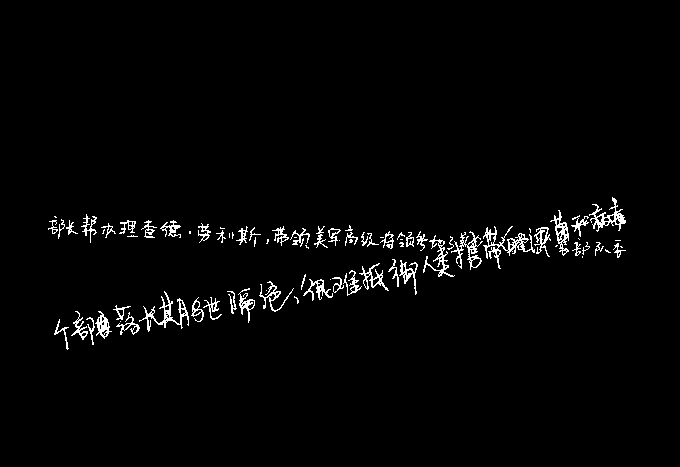 部长帮办理查德·劳利斯,带领美军高级将领参加 部队委
个部落长期与世隔绝,很难抵御人类携带 菌和病毒